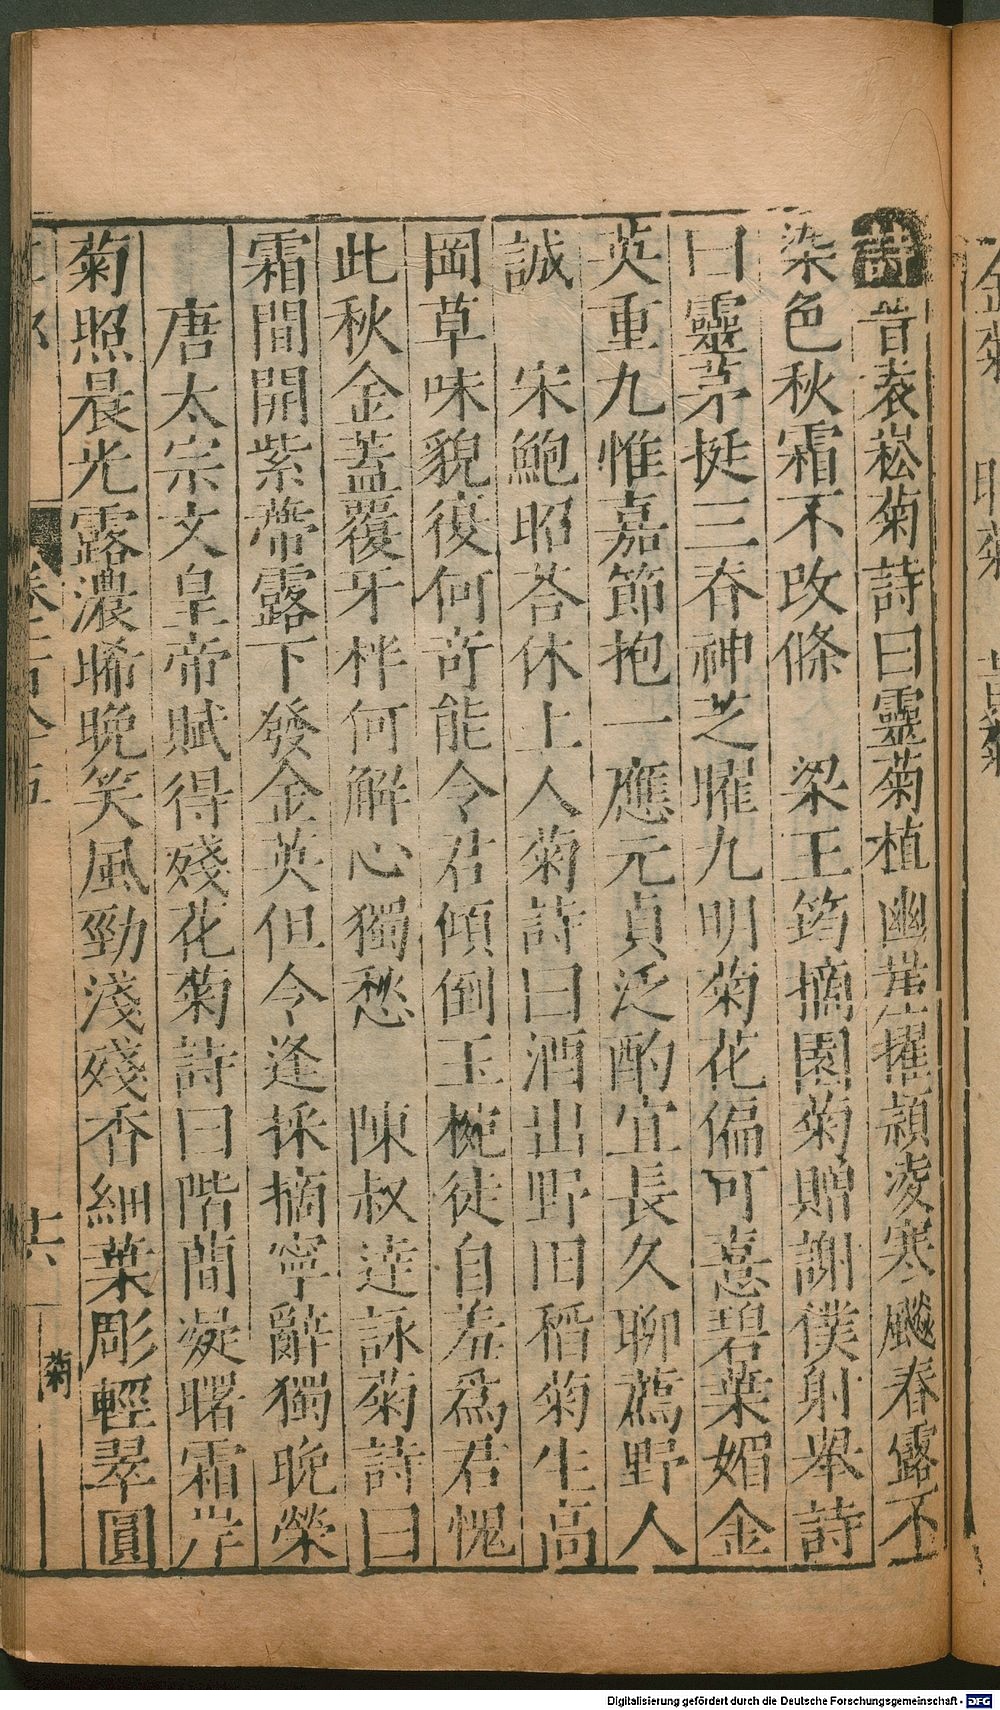 詩 昔袁崧菊詩曰靈菊植幽崖擢穎凌寒飈春露不
染色秋霜不改條 梁王筠摘園菊贈謝僕射舉詩
曰靈茅挺三春神芝曜九明菊花偏可憙碧葉媚金
英重九惟嘉節抱一應元貞泛酌宜長久聊薦野人
誠 宋鮑昭荅休上人菊詩曰酒出野田稻菊生高
岡草味貌復何奇能令君傾倒玉椀徒自羞爲君慨
此秋金蓋覆牙柈何解心獨愁 陳叔達詠菊詩曰
霜間開紫蔕露下發金英但令逢採摘寧辭獨晚榮
唐太宗文皇帝賦得殘花菊詩曰階蘭凝曙霜岸
菊照晨光露濃晞晚笑風勁淺殘香細葉彫輕翠圓
卷 十六 菊
Digitalisierung gefördert durch die Deutsche Forschungsgemeinschaft - DFG